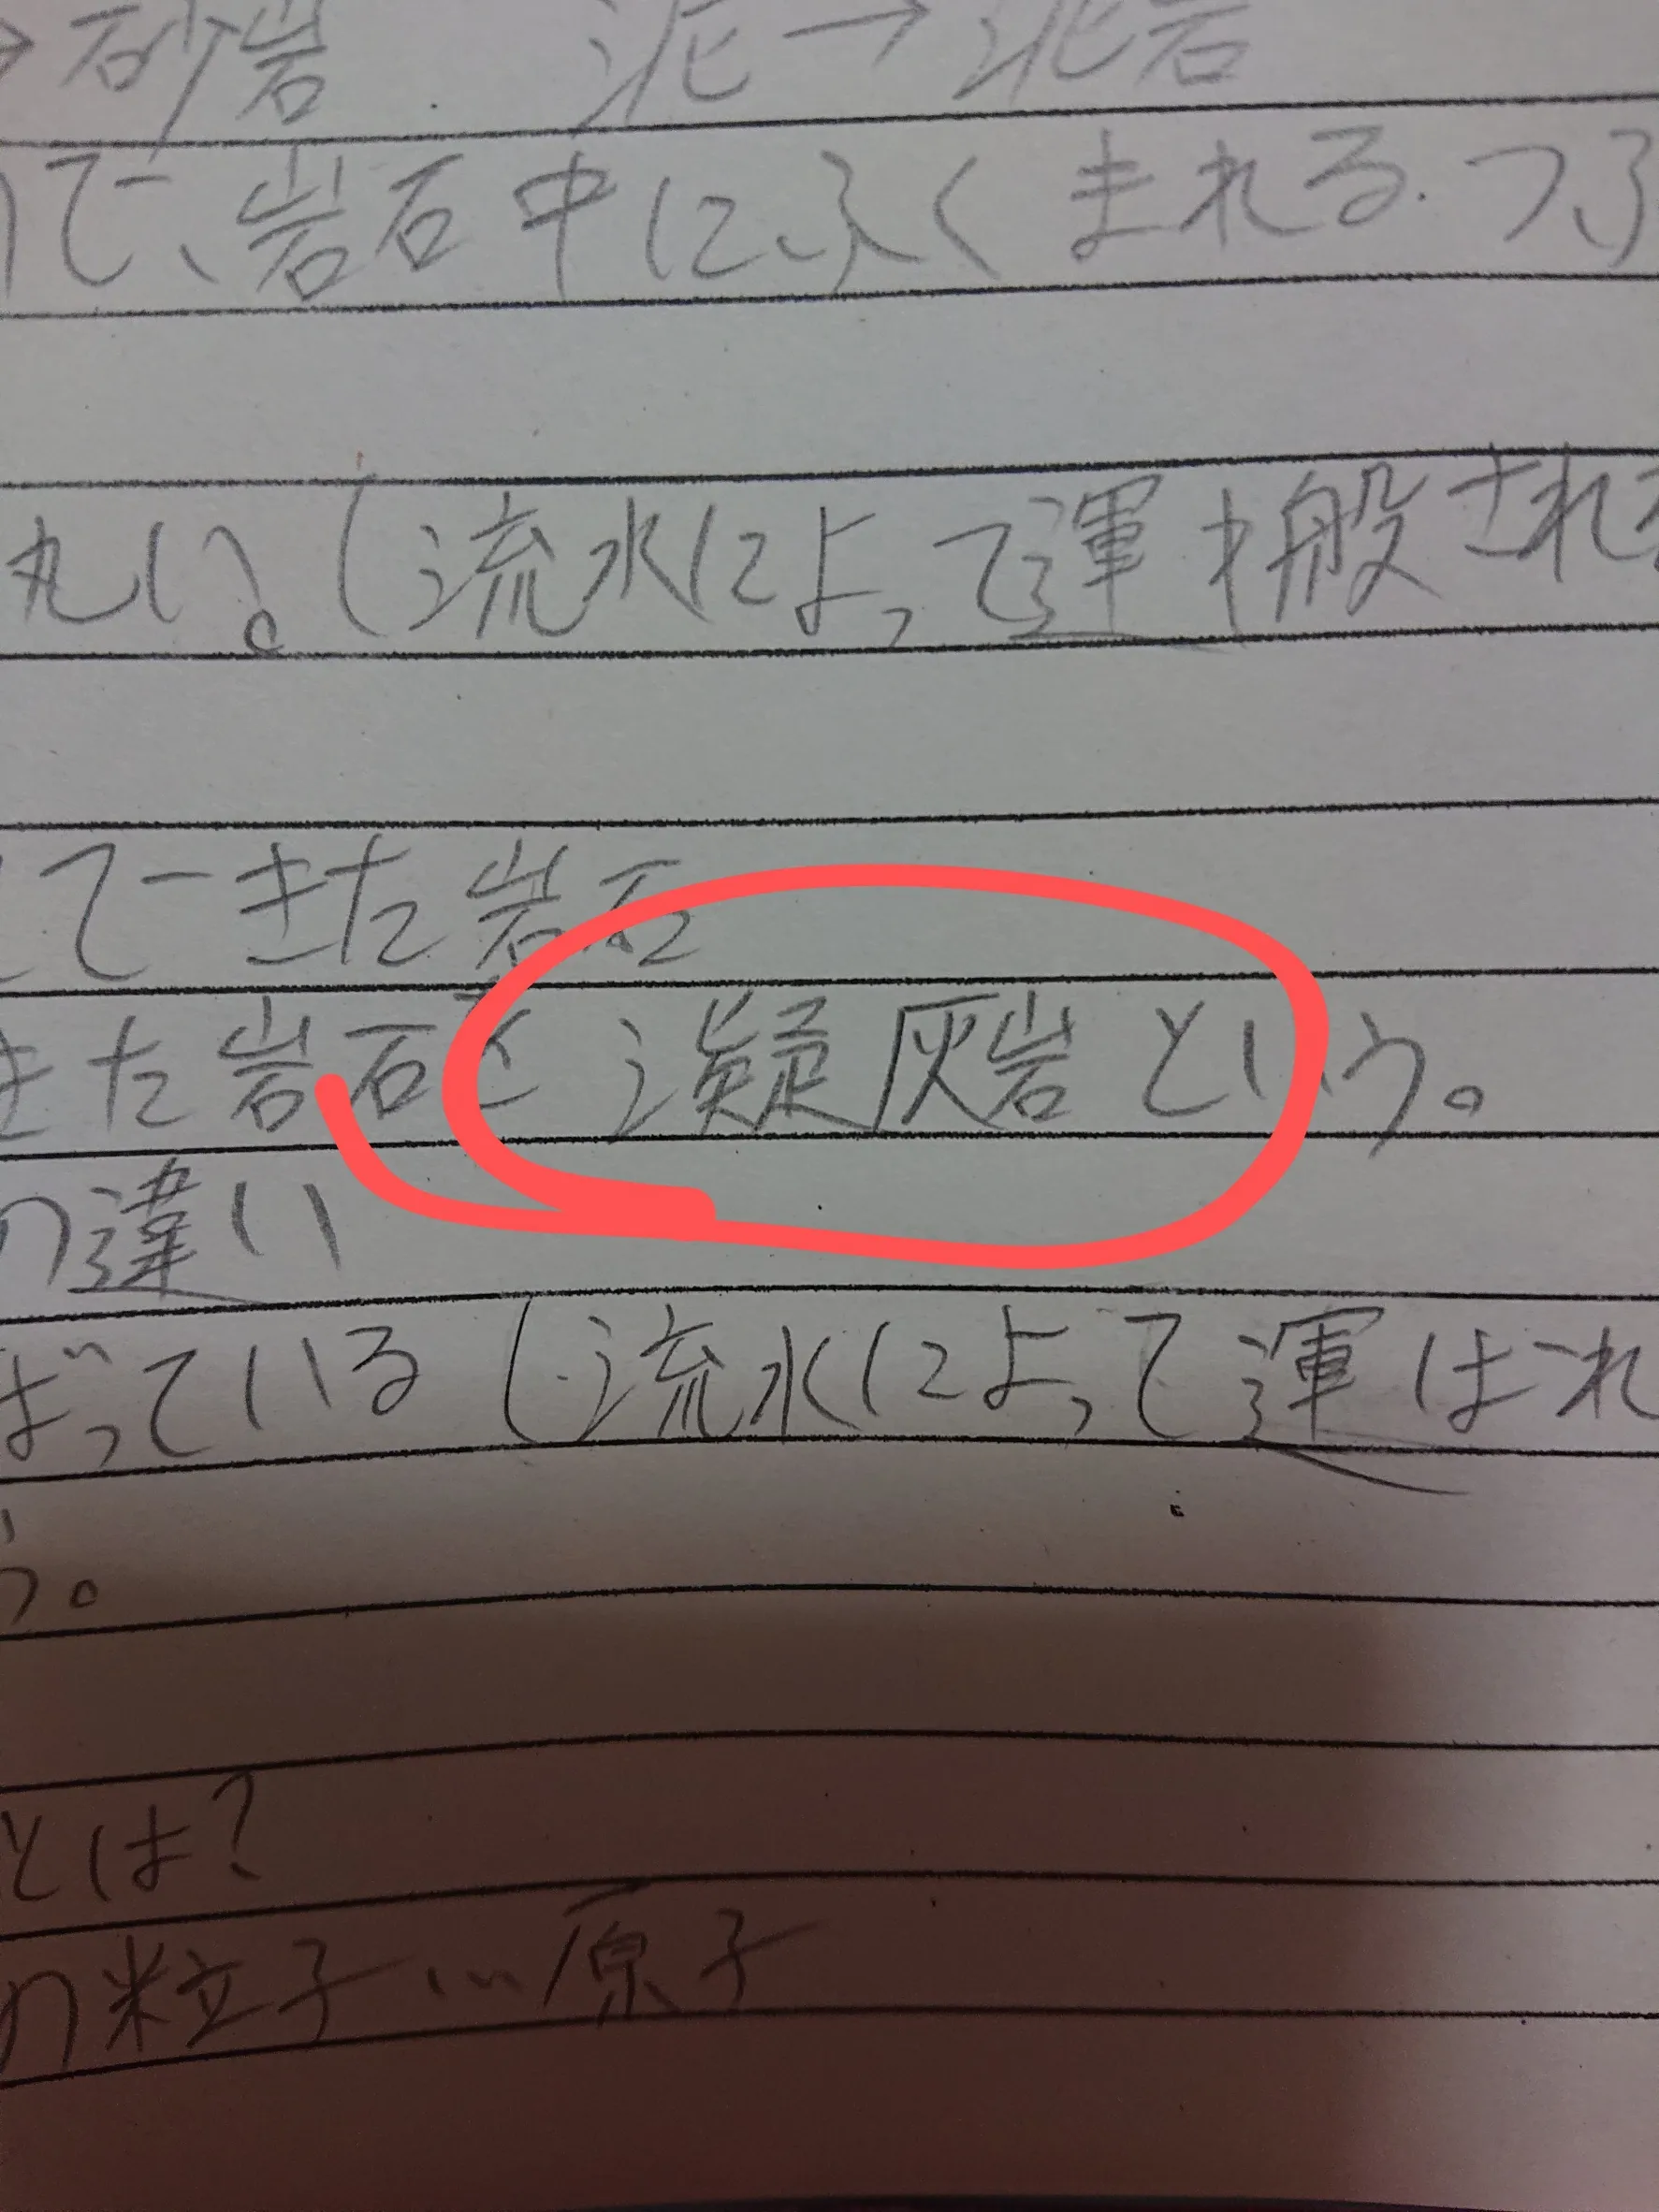 →砂岩 泥→泥岩
で、岩石中にふくまれるつぶ
丸い。(流水によって運搬され
てできた岩石
きた岩石を凝灰岩という。
の違い
ばっている(流水によって運ばれ
う。
とは?
の粒子…原子